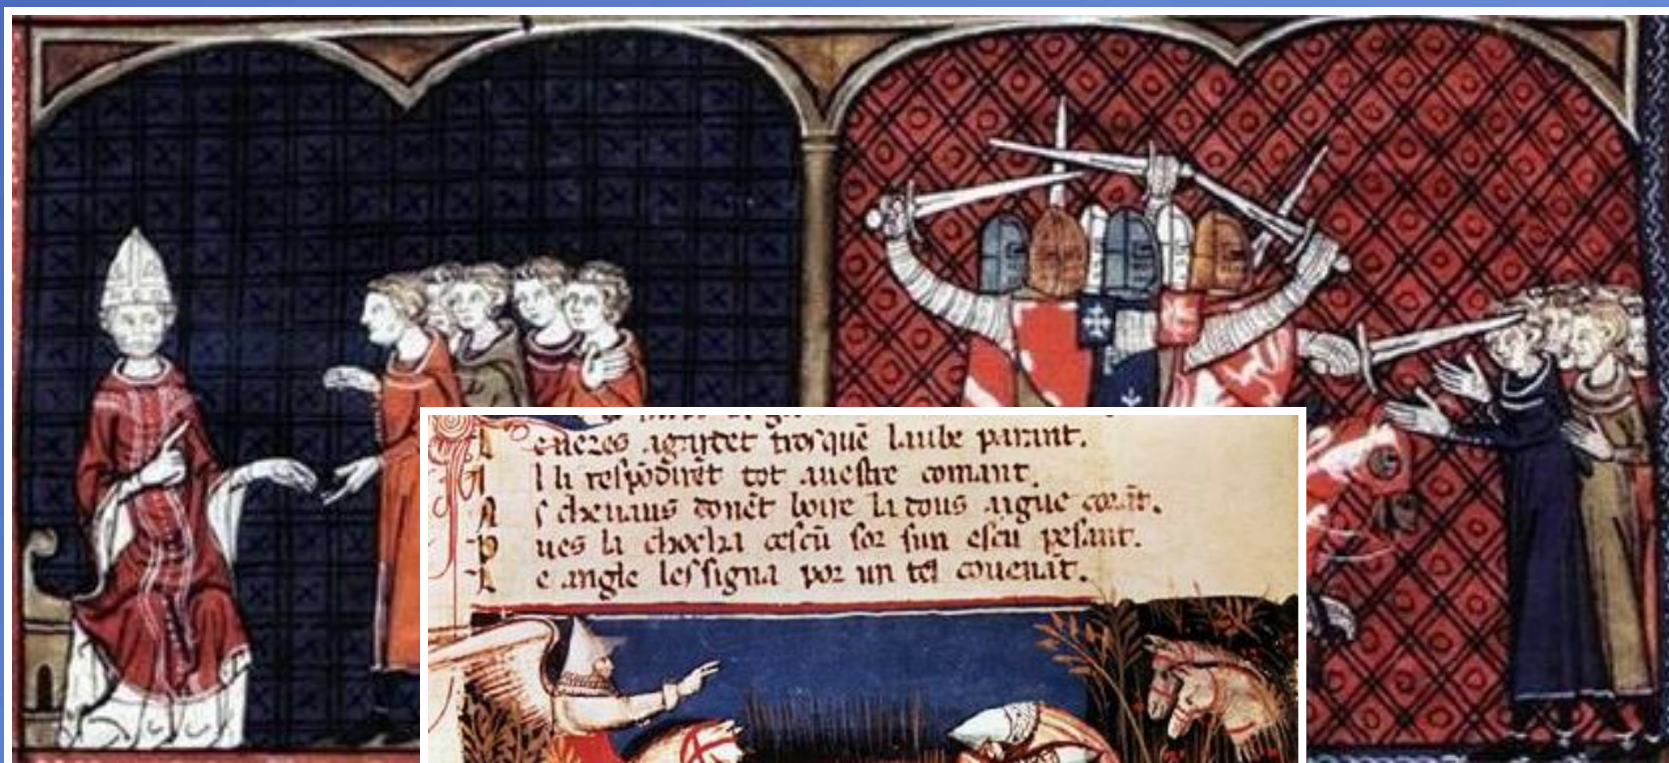 l eneres agaitet trosque laube parant.
I l li respōdirēt tot auestre comant.
A s cheuaus donēt boire la dous aigue corāt.
p ues la chocha cescū sor sun escu pesant.
L e angle les signa por un tel couenāt.